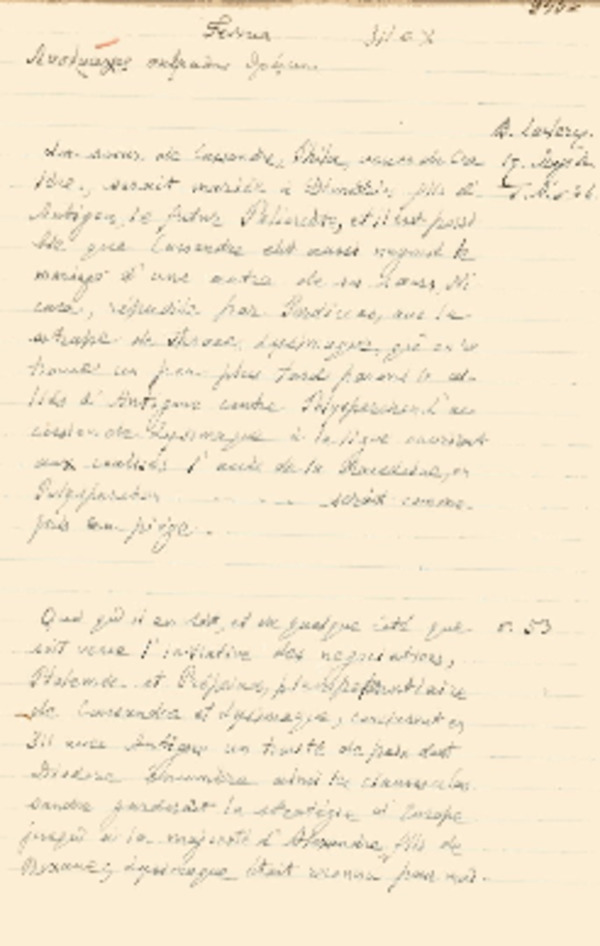 311 a X
B. Lenk
La soeur de Cassandre, Phila, veuve de Cra
tère, serait mariée à Démétrius, fils d'
Antigone, le futur Poliorcète, et il est possi
ble que Cassandre eût aussi négocié le
mariage d'une autre de ses soeurs, Ni
caea, répudiée par Perdiccas, avec le
satrape de Thrace, Lysimaque, qui se re
trouve un peu plus tard parmi le al-
liés d'Antigone contre Polysperchon. L'ac
cession de Lysimaque à la ligue ouvrirait
aux coalisés l'accès de la Macédoine, et
Polysperchon - - - serait comme
pris au piège.
Quoi qu'il en soit, et de quelque côté que
soit venue l'initiative des negociations,
Ptolémée et Prépélaos, plénipotentiaire
de Cassandre et Lysimaque, conclurent en
311 avec Antigone un traité de paix dont
Diodore énumère ainsi les clauses: Cas
sandre garderait la stratégie d'Europe
jusqu'à la majorité d'Alexandre, fils de
Roxane; Lysimaque était reconnu pour maî-
σ. 53